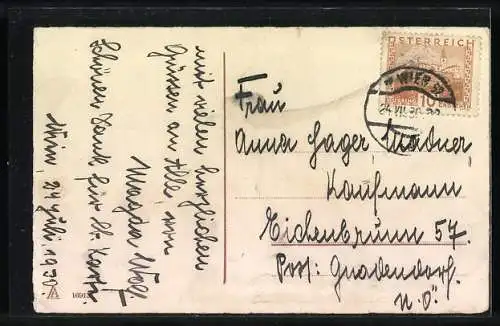 Wien, 24 Juli 1930.
Schönen Dank für lb. Karte.
mit vielen herzlichen
Grüssen an Alle, von
Magda
ÖSTERREICH
10
WIEN
24.VII.30
Frau
Anna Hager,
Kaufmann
Eichenbrunn 57.
Post: Gnadendorf.
N.Ö.